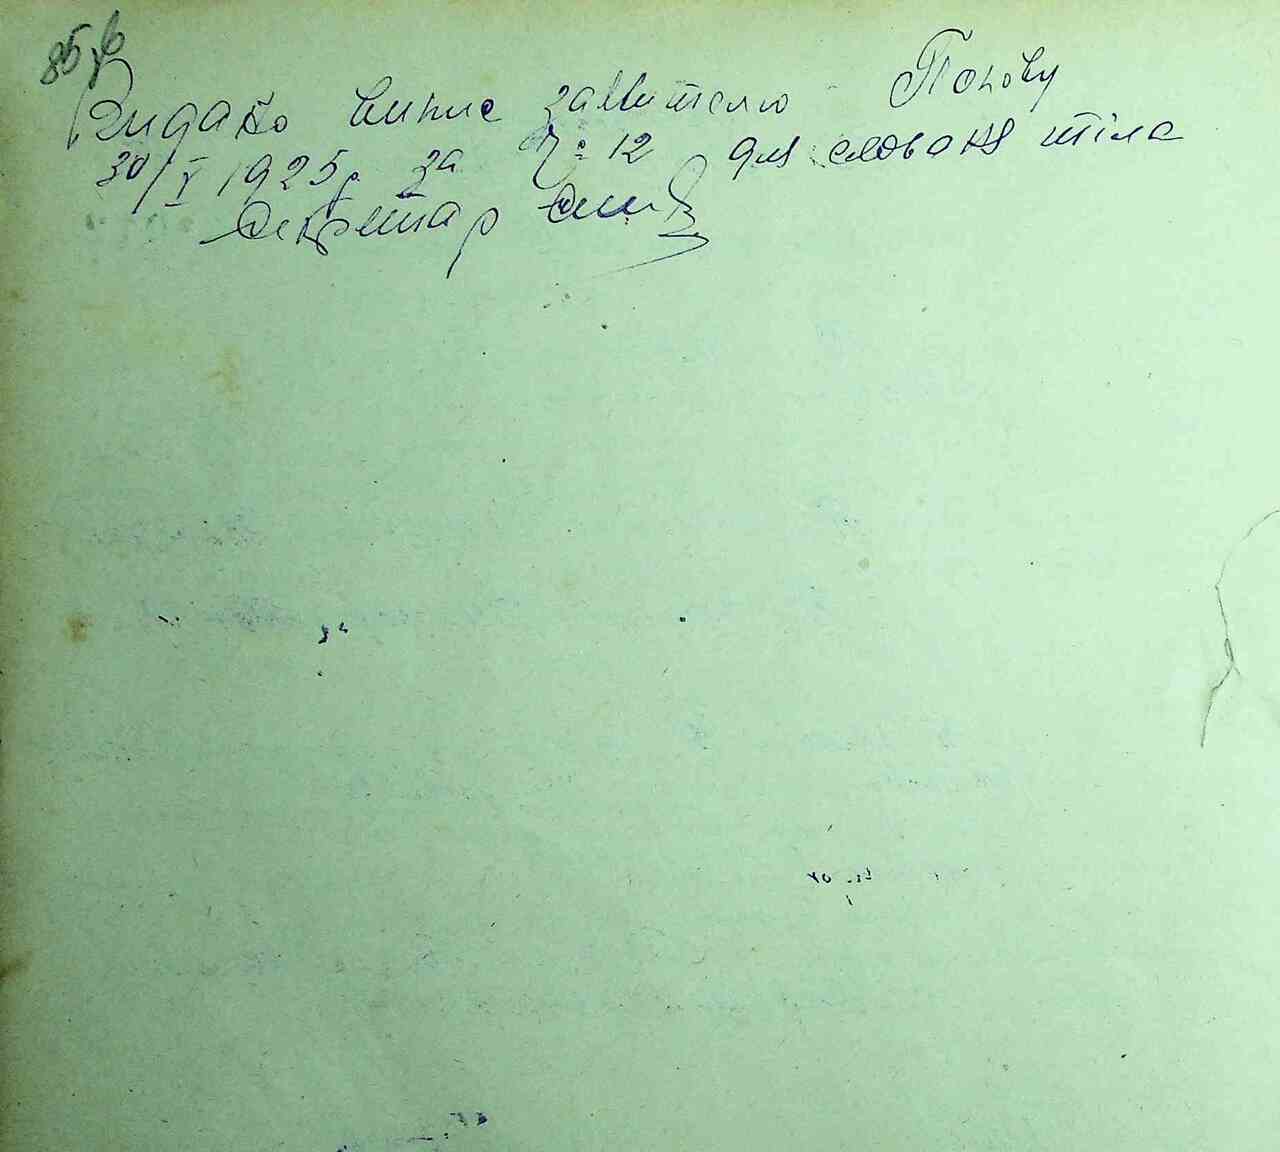 85 об
Видано випис заявителю Попову
30/V 1925 р. за № 12 для ховання тіла
Секретар